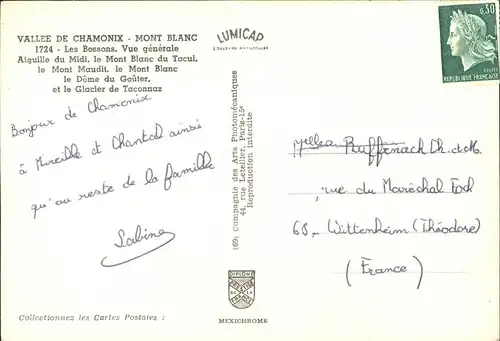 VALLEE DE CHAMONIX - MONT BLANC
1724 - Les Bossons. Vue générale
Aiguille du Midi, le Mont Blanc du Tacul,
le Mont Maudit, le Mont Blanc
le Dôme du Goûter,
et le Glacier de Taconnaz
Bonjour de Chamonix
à Mireille et Chantal ainsi
qu'au reste de la famille
Sabine
Collectionnez les Cartes Postales :
LUMICAP
COULEURS NATURELLES
(69) Compagnie des Arts Photomécaniques
44, rue Letellier, Paris-15e
Reproduction interdite
DIPLOME
PRESTIGE
DE LA
FRANCE
MEXICHROME
0,30
POSTES
REPUBLIQUE FRANÇAISE
Melles Ruffenach Ch. et M.
rue du Maréchal Foch
68 - Wittenheim (Théodore)
(France)